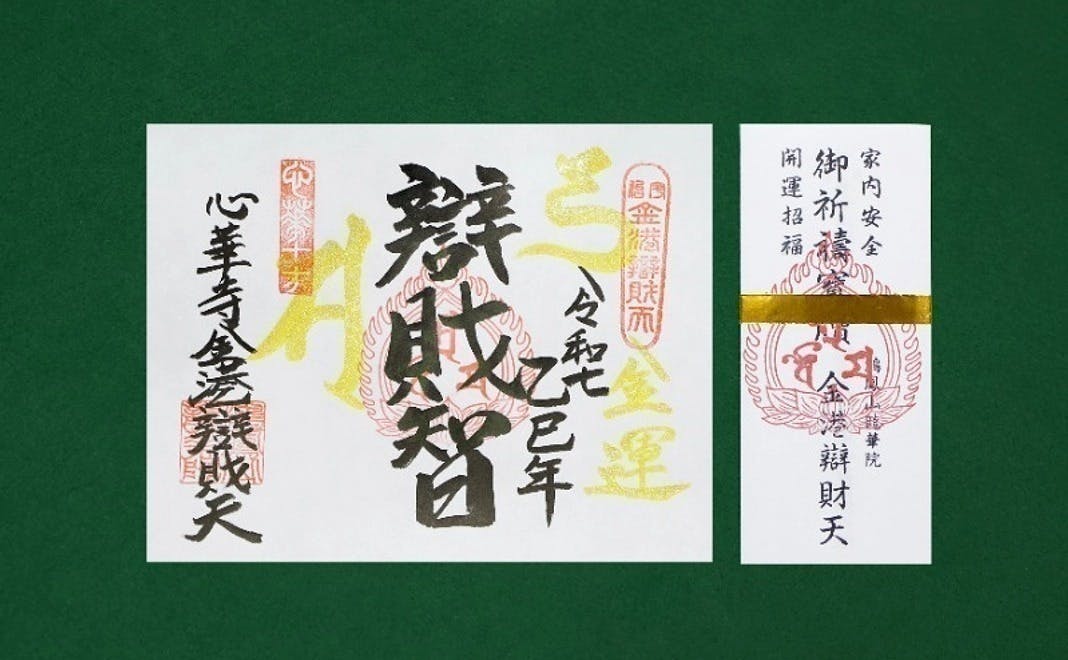 家内安全
御祈禱
金港辯財天
山龍華院
開運招福
金港辯財天
巳
金運
令和七
乙巳年
辯財智
心華寺金港辯財天